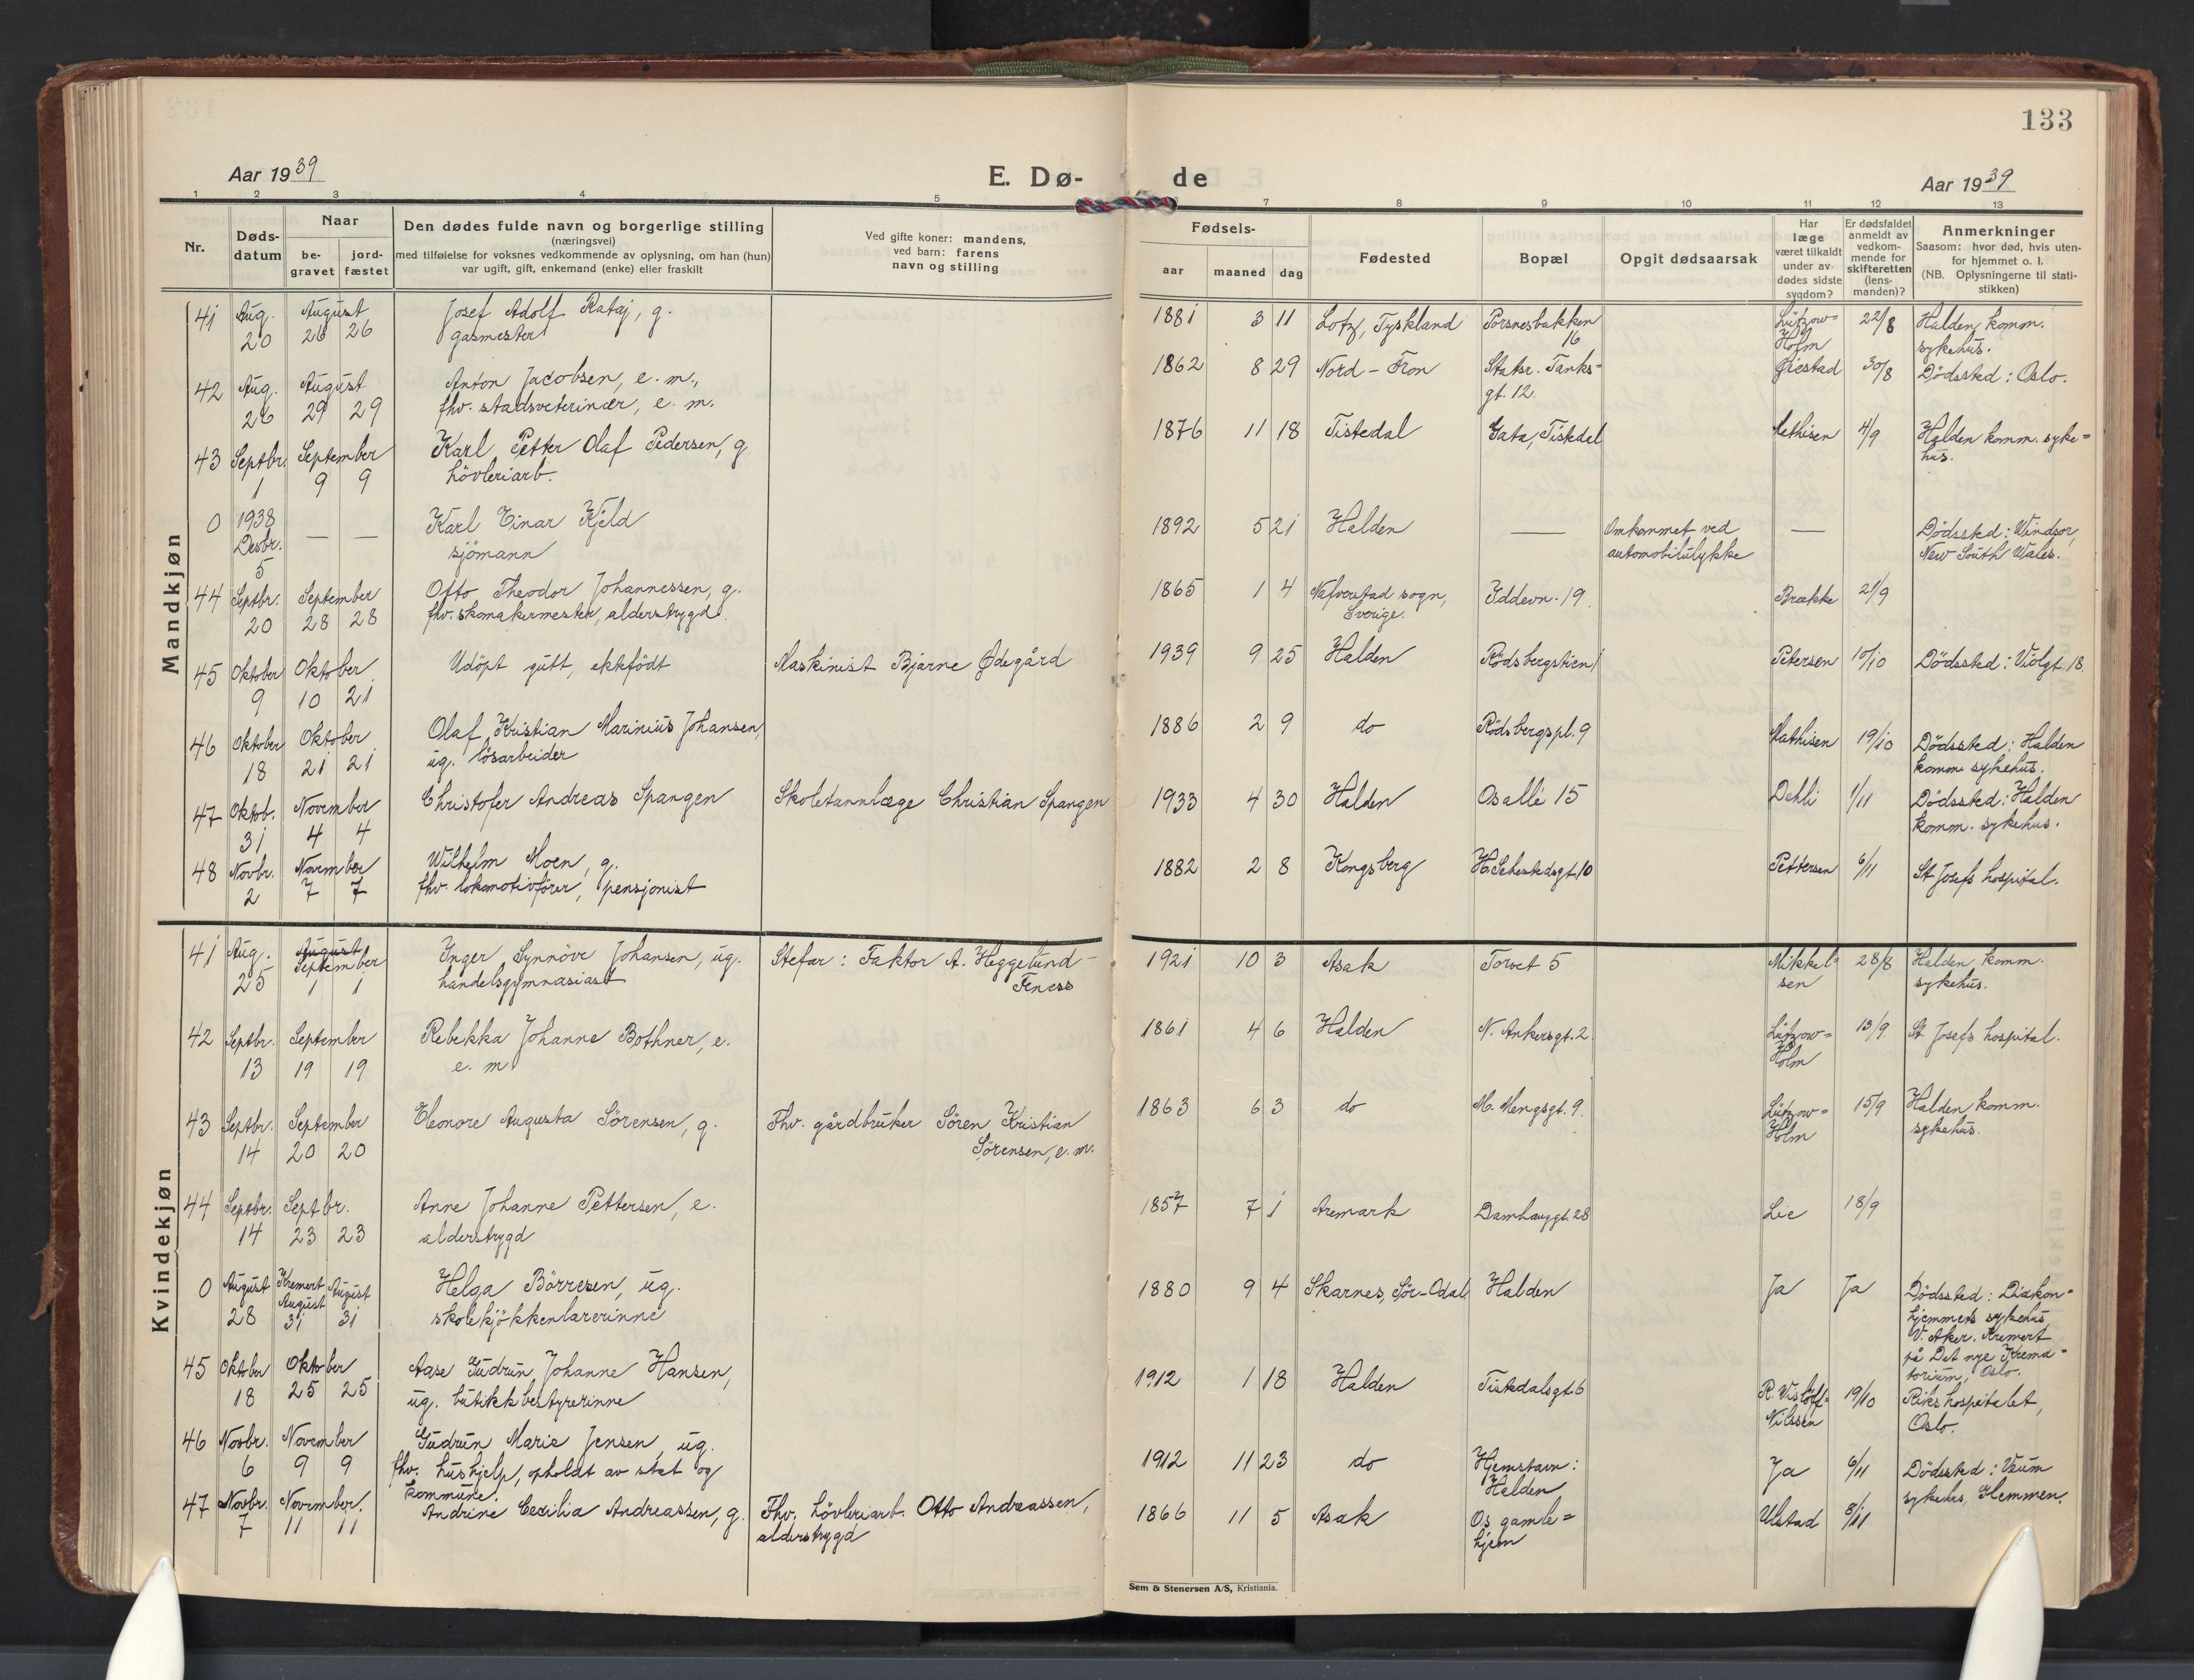 133
Aar 1939
E. Dø-
de
Aar 1939
1 2 3 4 5 7 8 9 10 11 12 13
Nr.
Døds-
datum
Naar
be-
gravet
jord-
fæstet
Den dødes fulde navn og borgerlige stilling
(næringsvei)
med tilføielse for voksnes vedkommende av oplysning, om han (hun)
var ugift, gift, enkemand (enke) eller fraskilt
Ved gifte koner: mandens,
ved barn: farens
navn og stilling
Fødsels-
aar maaned dag
Fødested
Bopæl
Opgit dødsaarsak
Har
læge
været tilkaldt
under av-
dødes sidste
sygdom?
Er dødsfaldet
anmeldt av
vedkom-
mende for
skifteretten
(lens-
manden)?
Anmerkninger
Saasom: hvor død, hvis uten-
for hjemmet o. l.
(NB. Oplysningerne til stati-
stikken)
Mandkjøn
41 Aug. August Josef Adolf Rataj, g. 1881 3 11 Lotz, Tyskland Porsnesbakken Lützow= 22/8 Halden komm.
20 26 26 gasmester 16 Holm sykehus.
42 Aug. August Anton Jacobsen, e. m., 1862 8 29 Nord-Fron Statsr. Tanks= Øiestad 30/8 Dödssted: Oslo.
26 29 29 fhv. stadsveterinær, e. m. gt. 12.
43 Septbr. September Karl Petter Olaf Pedersen, g. 1876 11 18 Tistedal Gata, Tistedal Mathisen 4/9 Halden komm. syke=
1 9 9 hövleriarb. hus.
0 1938 Karl Einar Kjeld 1892 5 21 Halden — Omkommet ved — Dödssted: Windsor,
Desbr. — — sjömann automobilulykke New South Wales.
5
44 Septbr. September Otto Theodor Johannessen, g. 1865 1 4 Nafverstad sogn, Iddevn. 19 Brække 21/9
20 28 28 fhv. skomakermester, alderstrygd Sverige.
45 Oktober Oktober Udöpt gutt, ektefödt Maskinist Bjarne Ødegård 1939 9 25 Halden Rödsbergstien 1 Petersen 10/10 Dödssted: Violgt. 18.
9 10 21
46 Oktober Oktober Olaf Kristian Marinius Johansen, 1886 2 9 do Rödsbergspl. 9 Mathisen 19/10 Dödssted: Halden
18 21 21 ug. lösarbeider komm. sykehus.
47 Oktob. November Christofer Andreas Spangen Skoletannlæge Christian Spangen 1933 4 30 Halden Osallé 15 Dehli 1/11 Dödssted: Halden
31 4 4 komm. sykehus.
48 Novbr. November Wilhelm Moen, g. 1882 2 8 Kongsberg H. Sehestedsgt. 10 Pettersen 6/11 St. Josefs hospital.
2 7 7 fhv. lokomotivfører, pensjonist
Kvindekjøn
41 Aug. August Inger Synnöve Johansen, ug. Stefar: Faktor A. Heggelund- 1921 10 3 Asak Torvet 5 Mikkel= 28/8 Halden komm.
September
25 1 1 handelsgymnasiast sen sykehus.
42 Septbr. September Rebekka Johanne Bothner, e. 1861 4 6 Halden N. Ankersgt. 2. Lützow= 13/9 St. Josefs hospital.
13 19 19 e. m. Holm
43 Septbr. September Eleonore Augusta Sörensen, g. Fhv. gårdbruker Sören Kristian 1863 6 3 do M. Mengsgt. 9. Lützow= 15/9 Halden komm.
14 20 20 Sörensen, e. m. Holm sykehus.
44 Septbr. Septbr. Anne Johanne Pettersen, e. 1857 7 1 Aremark Damhauggt. 28 Lie 18/9
14 23 23 alderstrygd
0 August Kremert August Helga Börresen, ug. 1880 9 4 Skarnes, Sør-Odal Halden Ja Ja Dödssted: Diakon=
August hjemmets sykehus,
28 31 31 skolekjøkkenlærerinne V. Aker. Kremert
på Det nye Krema=
torium, Oslo.
45 Oktober Oktober Aase Gudrun Johanne Hansen, 1912 1 18 Halden Tistedalsgt. 6 19/10 Rikshospitalet,
18 25 25 ug. butikkbestyrerinne Nilssen Oslo.
46 Novbr. November Gudrun Marie Jensen, ug. 1912 11 23 do Hjemstavn: Ja 6/11 Dödssted: Veum
6 9 9 fhv. hushjelp, opholdt av stat og Halden sykehus, Glemmen.
kommune.
47 Novbr. November. Andrine Cecilia Andreassen, g. Fhv. hövleriarb. Otto Andreassen, 1866 11 5 Asak Os gamle= Ulstad 8/11
7 11 11 alderstrygd hjem
Sem & Stenersen A/S, Kristiania.